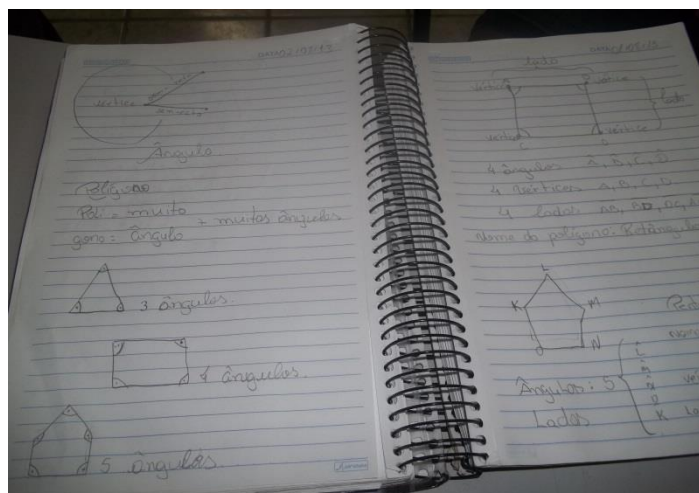 vértice
Ângulo
Polígono
Poli = muito
gono: ângulo + muitos ângulos
3 ângulos.
4 ângulos.
5 ângulos.
lado
vértice
vértice
lado
vértice
vértice
C
D
4 ângulos A, B, C, D
4 vértices A, B, C, D
4 lados AB, BD, DC,
Nome do polígono. Retângulo
L
K
M
N
Ângulos: 5
L
M
N
O
K
Lados